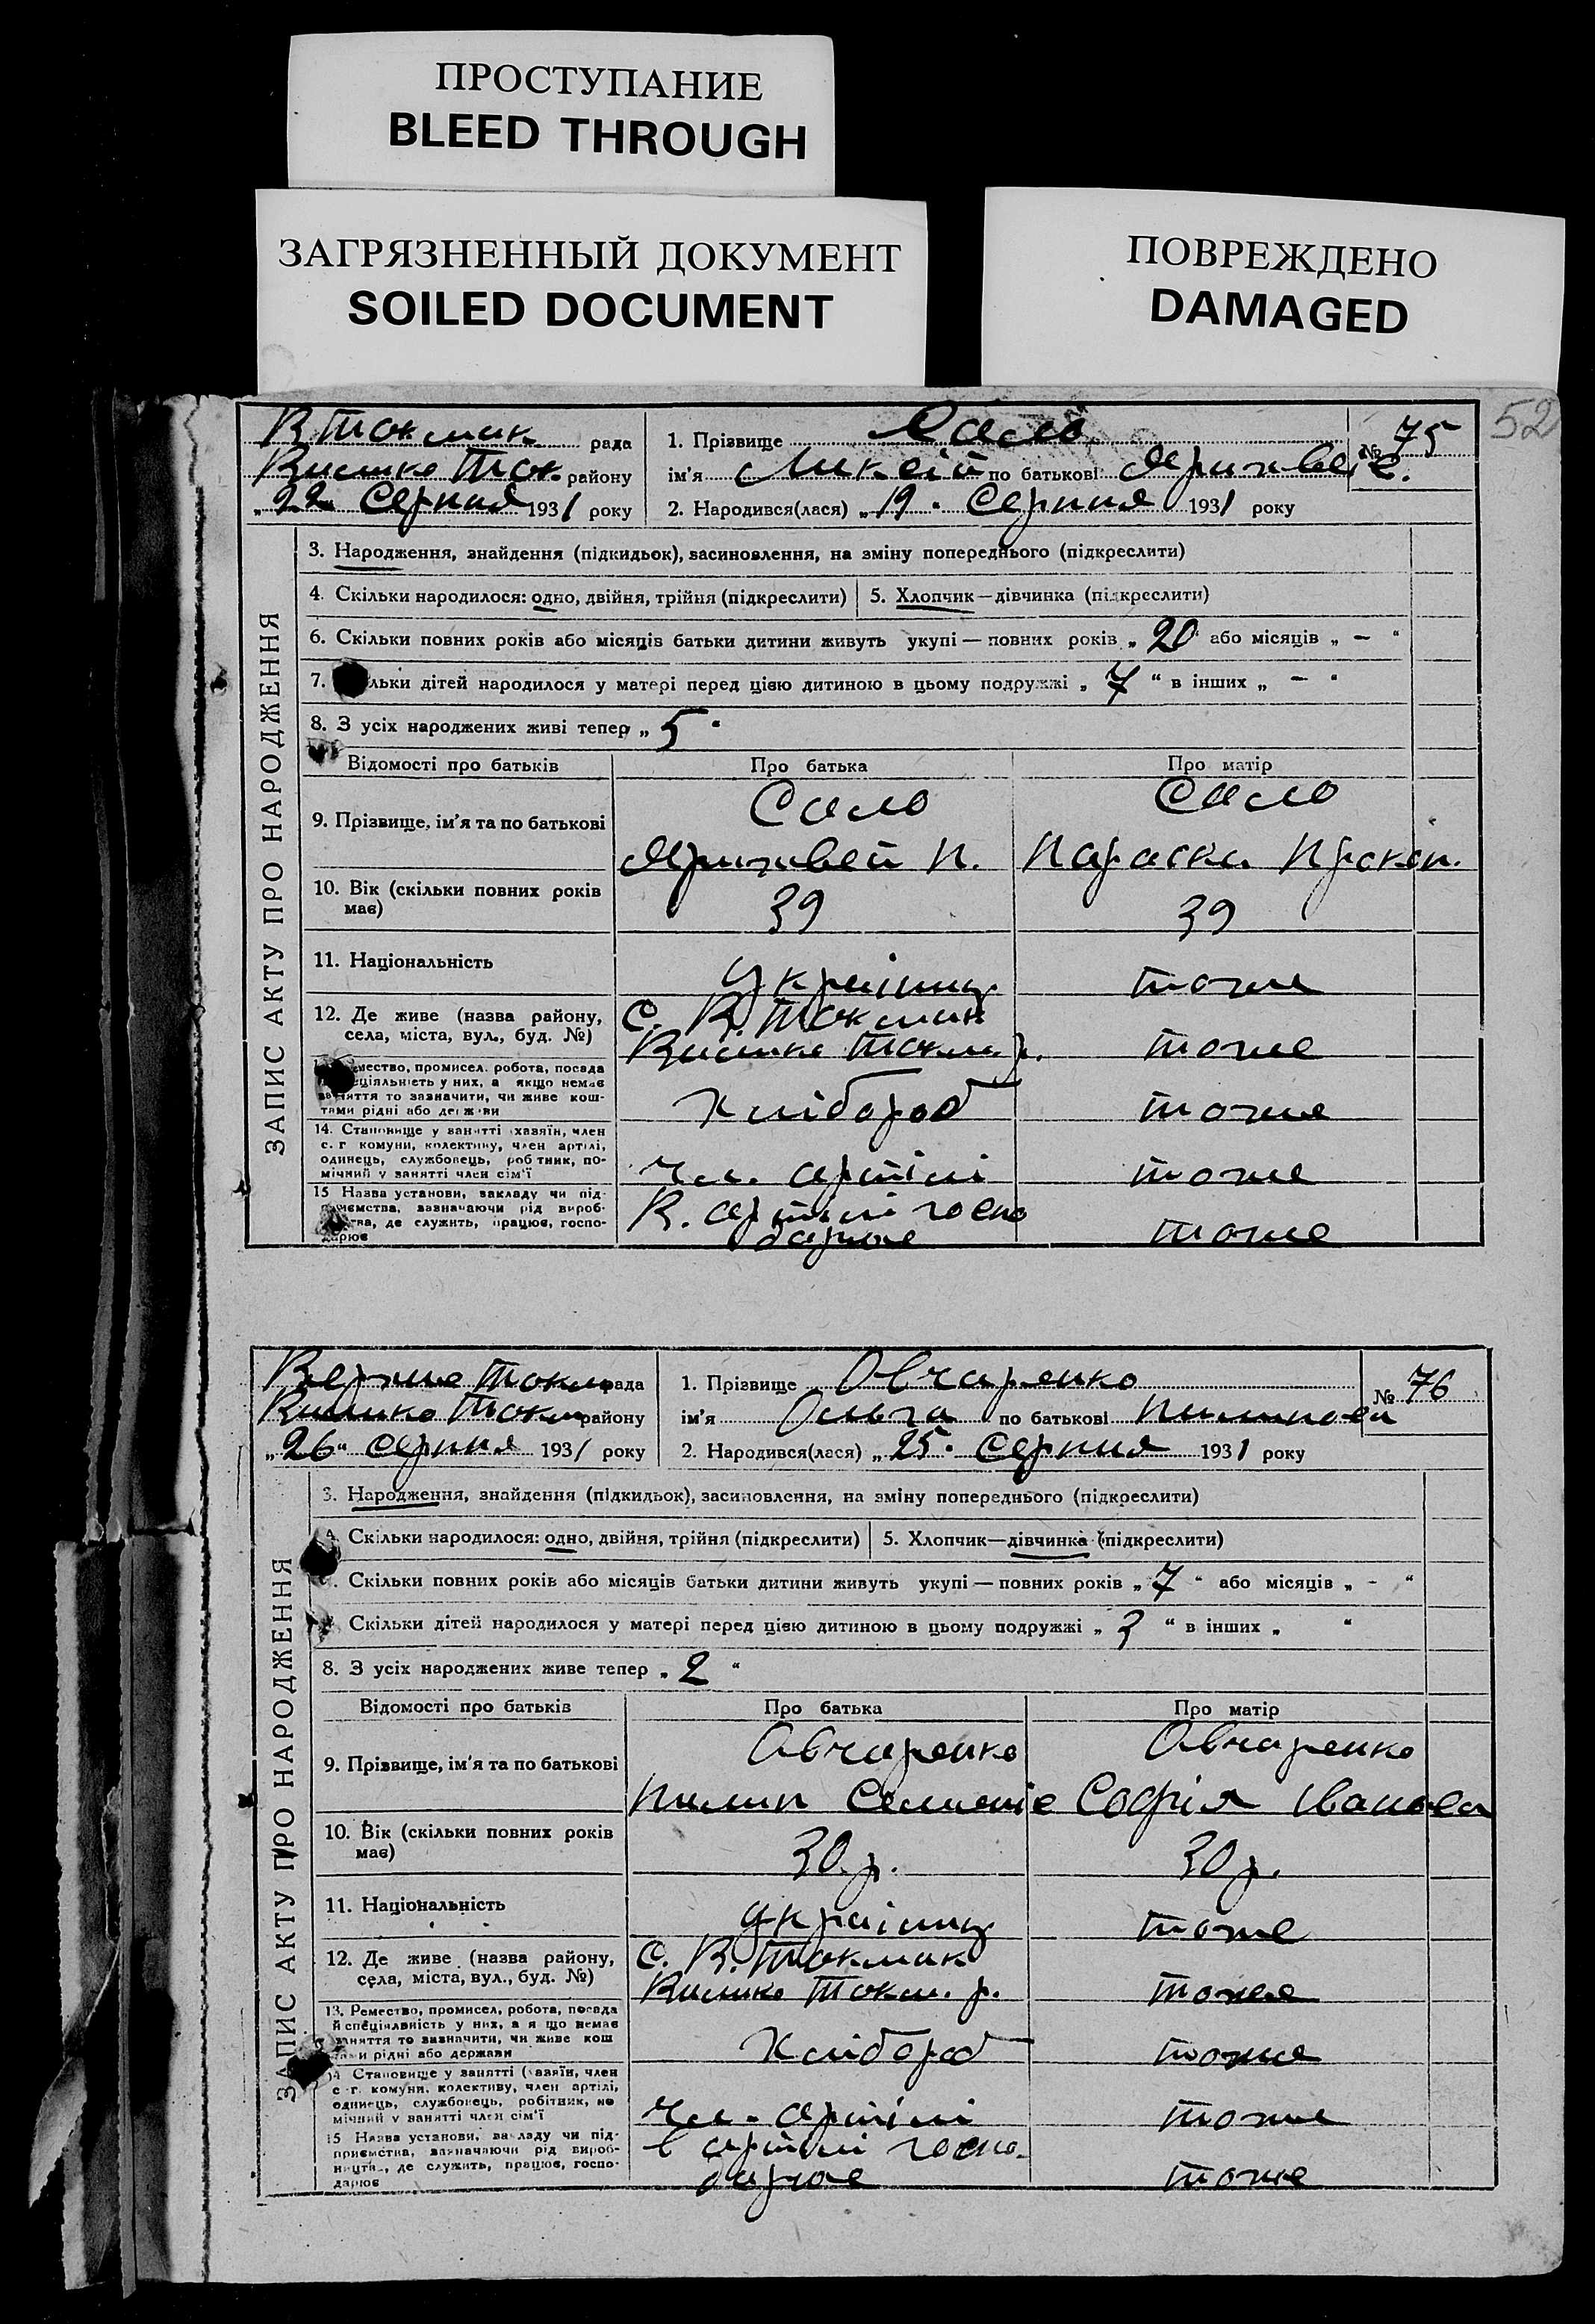 ПРОСТУПАНИЕ
BLEED THROUGH
ЗАГРЯЗНЕННЫЙ ДОКУМЕНТ
SOILED DOCUMENT
ПОВРЕЖДЕНО
DAMAGED
52
ЗАПИС АКТУ ПРО НАРОДЖЕННЯ
В. Токмак рада
Велико Ток. району
"22 Серпня 1931 року
1. Прізвище Сало
№ 75
ім'я по батькові
2. Народився(лася) "19" Серпня 1931 року
3. Народження, знайдення (підкидьок), засиновлення, на зміну попереднього (підкреслити)
4. Скільки народилося: одно, двійня, трійня (підкреслити)
5. Хлопчик—дівчинка (підкреслити)
6. Скільки повних років або місяців батьки дитини живуть укупі — повних років „ 20 " або місяців „ — "
7. льки дітей народилося у матері перед цією дитиною в цьому подружжі „ 7 " в інших „ — "
8. З усіх народжених живі тепер „ 5 "
Відомості про батьків
Про батька
Про матір
9. Прізвище, ім'я та по батькові
Сало
П.
Сало
Параска Прокоп.
10. Вік (скільки повних років має)
39
39
11. Національність
українц
тоже
12. Де живе (назва району, села, міста, вул., буд. №)
С. В. Токмак
Велико Токм. р.
тоже
мество, промисел, робота, посада
еціяльність у них, а якщо немає
заняття то зазначити, чи живе кош-
тами рідні або держави
Хлібороб
тоже
14. Становище у занятті (хазяїн, член
с. г. комуни, колективу, член артілі,
одинець, службовець, робітник, по-
мічний у занятті член сім'ї
чл. артілі
тоже
15 Назва установи, закладу чи під-
приємства, зазначаючи рід вироб-
тва, де служить, працює, госпо-
дарює
В. артілі госпо
дарює
тоже
ЗАПИС АКТУ ПРО НАРОДЖЕННЯ
Верхне Токм рада
Велико Токм району
„26" серпня 1931 року
1. Прізвище Овчаренко
№ 76
ім'я Ольга по батькові Пилипова
2. Народився(лася) „25" Серпня 1931 року
3. Народження, знайдення (підкидьок), засиновлення, на зміну попереднього (підкреслити)
4. Скільки народилося: одно, двійня, трійня (підкреслити)
5. Хлопчик—дівчинка (підкреслити)
Скільки повних років або місяців батьки дитини живуть укупі — повних років „ 7 " або місяців „ - "
Скільки дітей народилося у матері перед цією дитиною в цьому подружжі „ 3 " в інших „ "
8. З усіх народжених живе тепер „ 2 "
Відомості про батьків
Про батька
Про матір
9. Прізвище, ім'я та по батькові
Овчаренко
Пилип
Овчаренко
Софія Іванова
10. Вік (скільки повних років має)
30 р.
30 р.
11. Національність
українц
тоже
12. Де живе (назва району, села, міста, вул., буд. №)
С. В. Токмак
Велико Токм. р.
тоже
13. Ремество, промисел, робота, посада
й спеціяльність у них, а я що немає
заняття то зазначити, чи живе кош
тами рідні або держави
Хлібороб
тоже
14 Становище у занятті (хазяїн, член
с г. комуни, колективу, член артілі,
одинець, службовець, робітник, по
мічний у занятті член сім'ї
чл. артілі
тоже
15 Назва установи, закладу чи під-
приємства, зазначаючи рід вироб-
ництва, де служить, працює, госпо-
дарює
в артілі госпо-
дарює
тоже